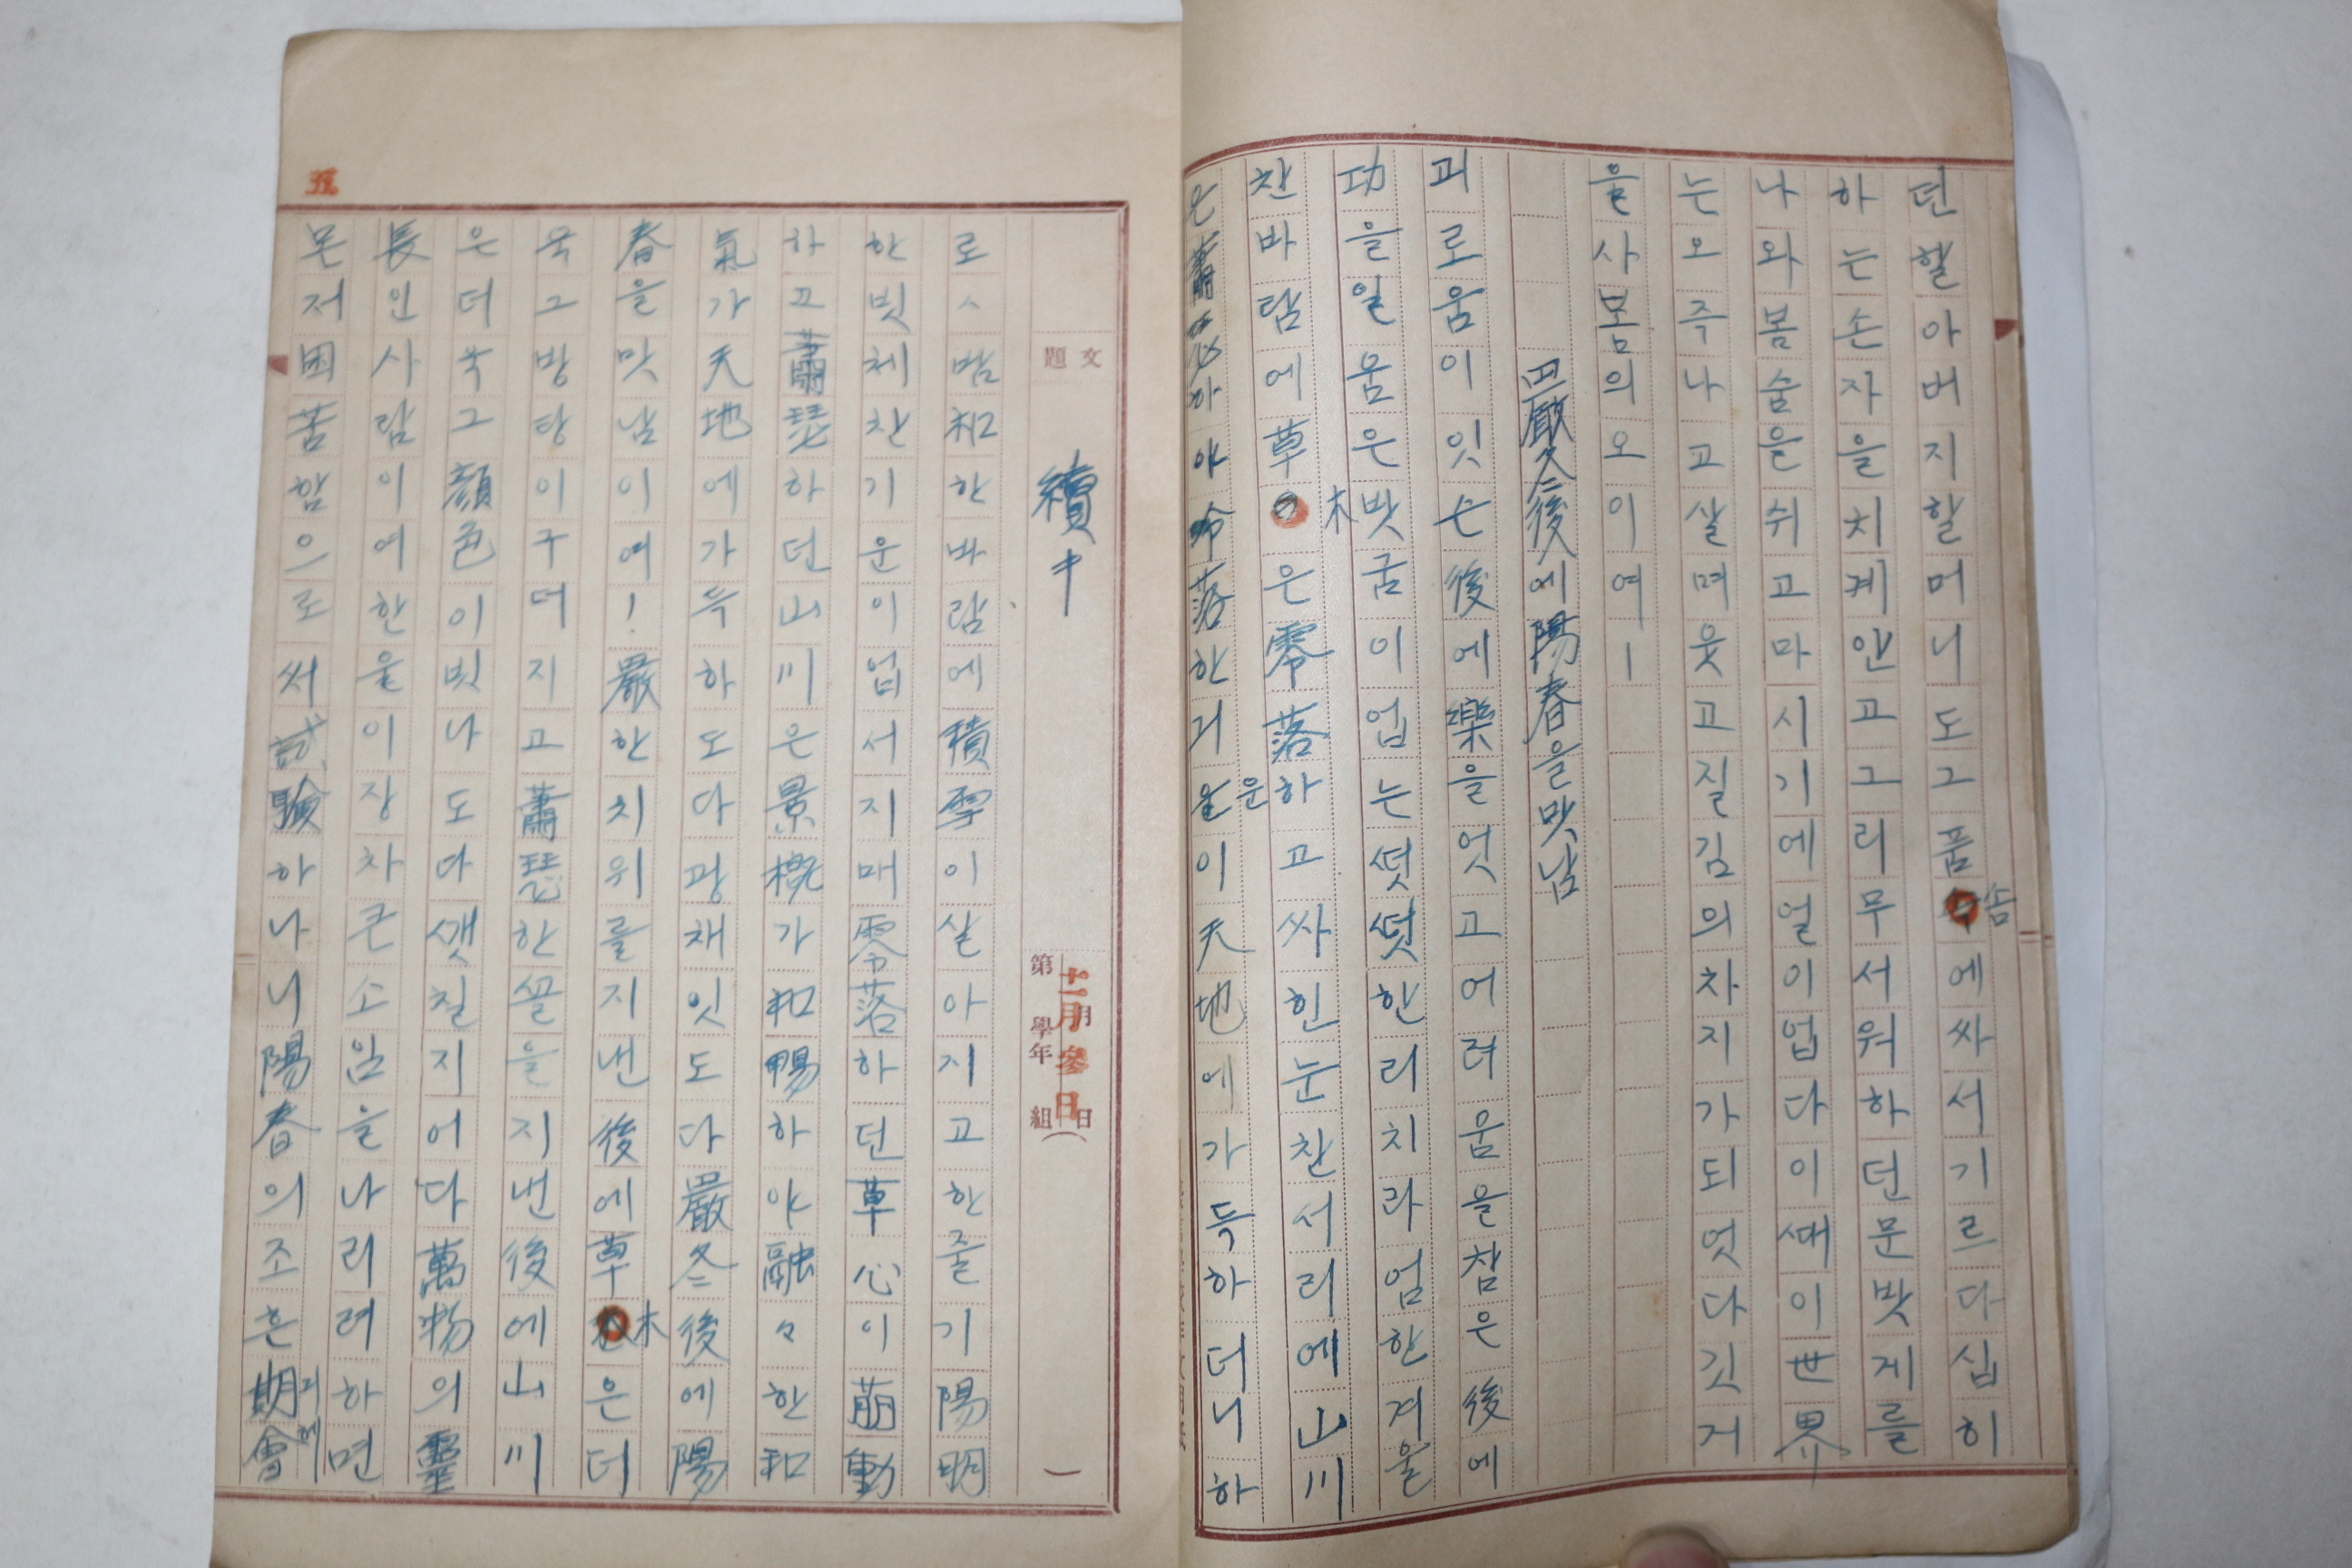 던할아버지할머니도그품솜에싸서기르다십히
하는손자을치계안고그리무서워하던문밧게를
나와봄숨을쉬고마시기에얼이업다이ᄯᅢ이世界
는오주나고살며웃고질김의차지가되엿다깃거
을사봄의오이여ㅣ
嚴冬後에陽春을맛남
괴로움이잇는後에樂을엇고어려움을참은後에
功을일움은밧굼이업는ᄯᅥᆺᄯᅥᆺ한리치라엄한겨울
찬바람에草木은零落하고싸힌눈찬서리에山川
은蕭瑟하야冷落한긔운이天地에가득하더니하
文題
續キ
第 學年 組
十二月參日
로〻밤和한바람에積雪이살아지고한줄기陽明
한빗체찬기운이업서지매零落하던草心이萠動
하고蕭瑟하던山川은景槪가和暢하야融々한和
氣가天地에가득하도다광채잇도다嚴冬後에陽
春을맛남이여!嚴한치위를지낸後에草木은더
욱그방탕이구더지고蕭瑟한꼴을지낸後에山川
은더욱그顔色이빗나도다ᄭᅢᆺ칠지어다萬物의靈
長인사람이여한울이장차큰소임을나리려하면
몬저困苦함으로써試驗하나니陽春의조흔期會